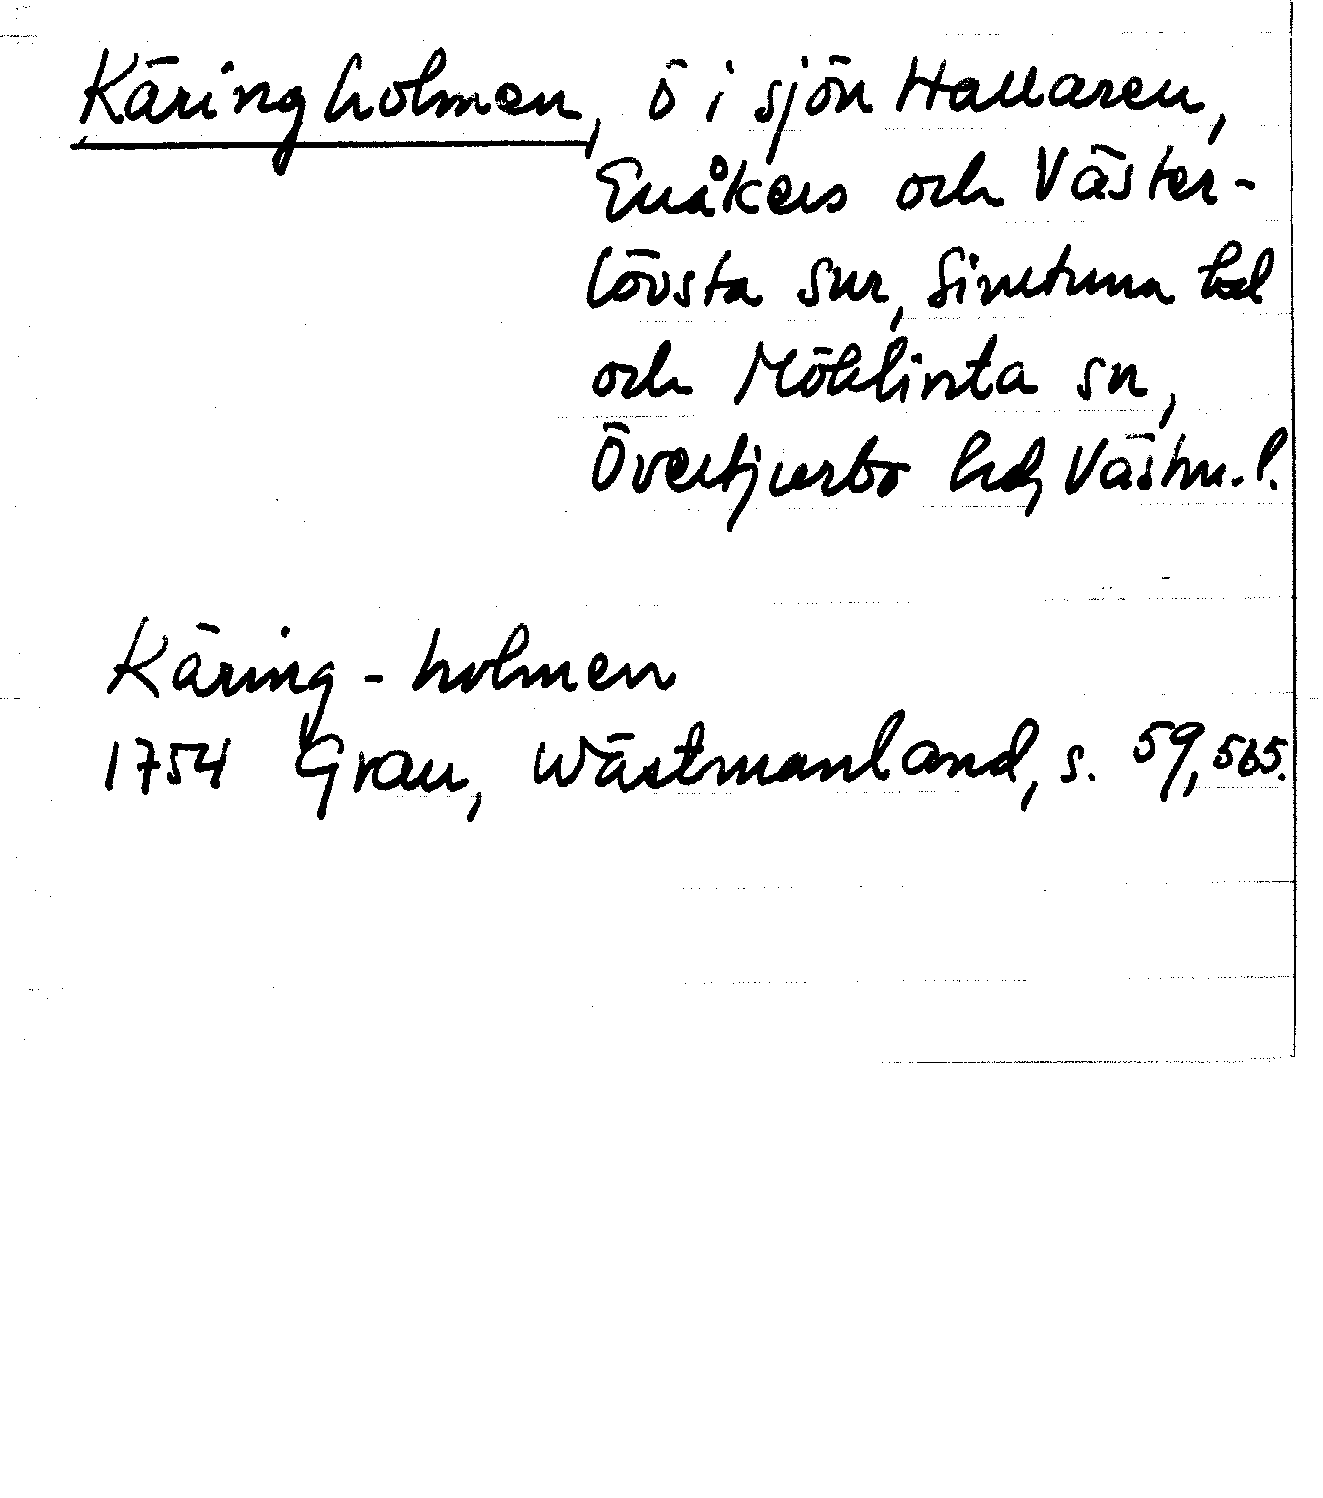 Käringholmen, ö i sjön Hallaren,
Enåkers och Väster-
lövsta snr, Simtuna hd
och Möklinta sn,
Övertjurbo hd, Västm. l.
Käring - holmen
1754 Grau, Wästmanland, s. 59, 565.